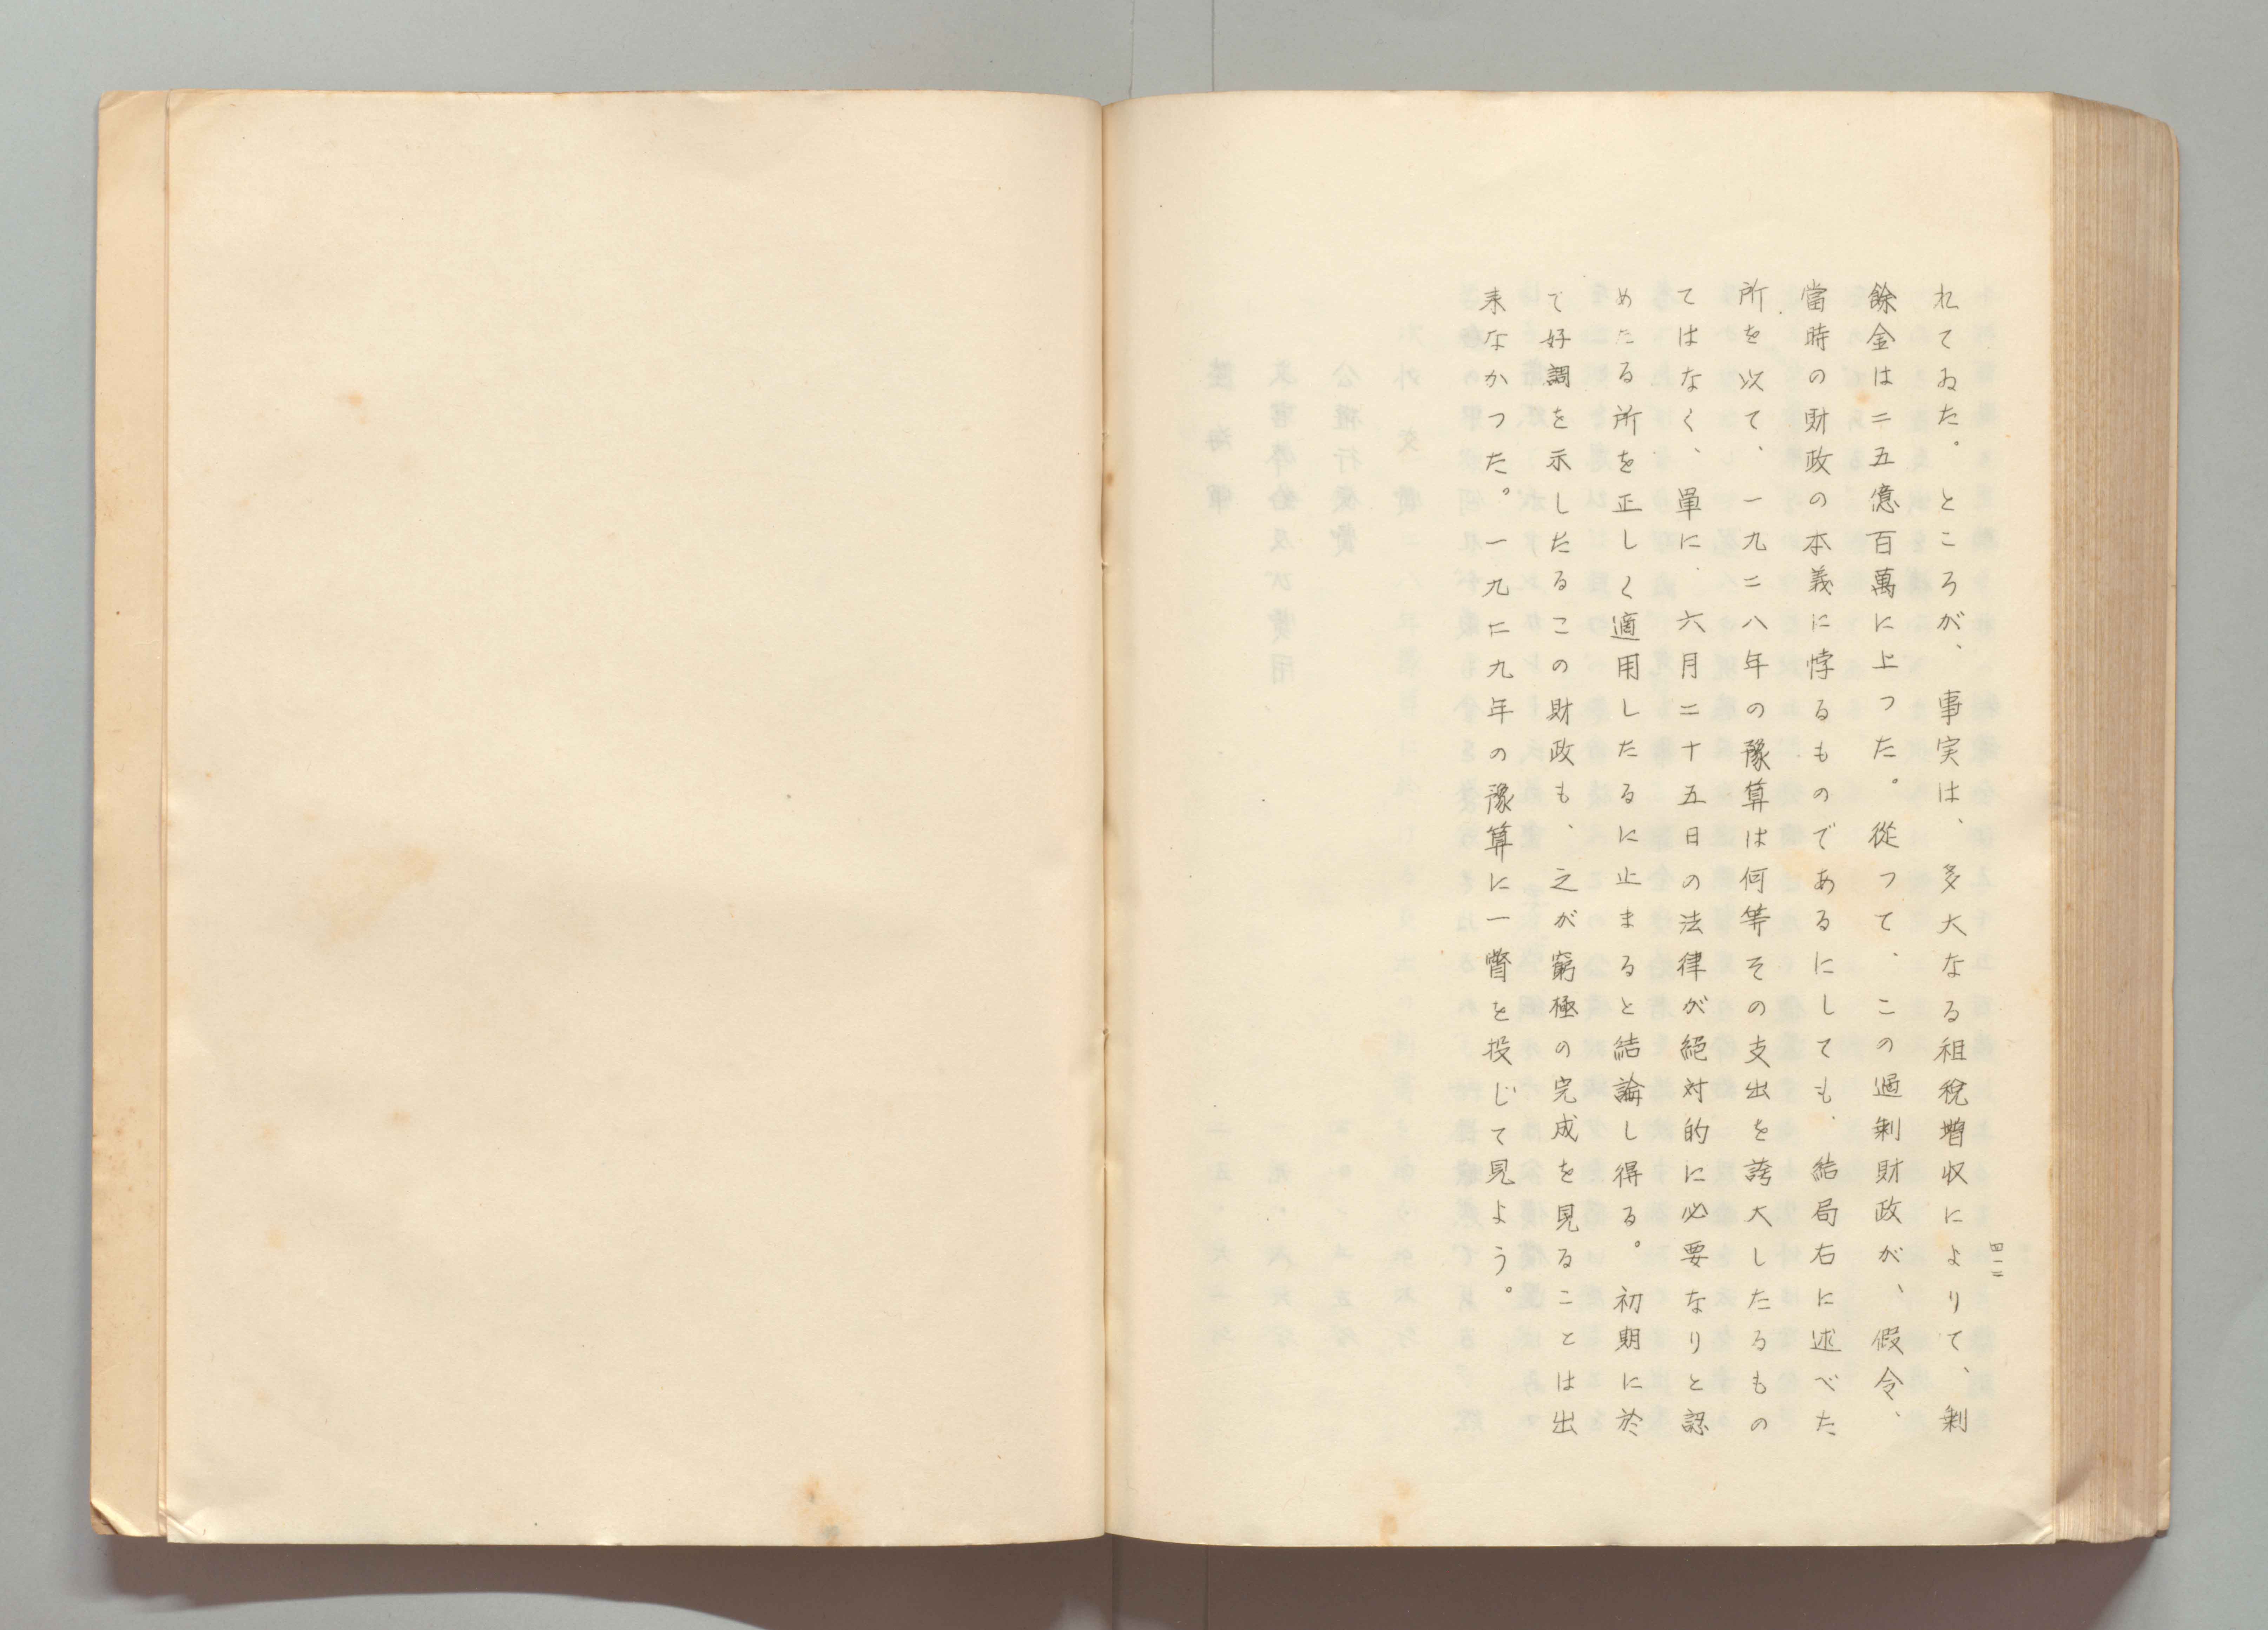 れてゐた。ところが、事実は、多大なる祖税増収によりて、剰
餘金は二五億百萬に上つた。從つて、この過剰財政が、假令、
當時の財政の本義に悖るものであるにしても、結局右に述べた
所を以て、一九二八年の豫算は何等その支出を誇大したるもの
てはなく、單に、六月二十五日の法律が絕対的に必要なりと認
めたる所を正しく適用したるに止まると結論し得る。初期に於
て好調を示したるこの財政も、之が窮極の完成を見ることは出
来なかつた。一九二九年の豫算に一瞥を投じて見よう。
四二